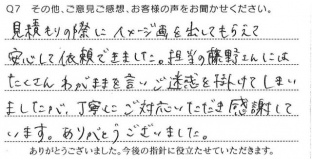 Q7 その他、ご意見ご感想、お客様の声をお聞かせください。
見積もりの際にイメージ画を出してもらえて
安心して依頼できました。担当の藤野さんには
たくさんわがままを言いご迷惑を掛けてしまい
ましたが、丁寧にご対応いただき感謝して
います。ありがとうございました。
ありがとうございました。今後の指針に役立たせていただきます。